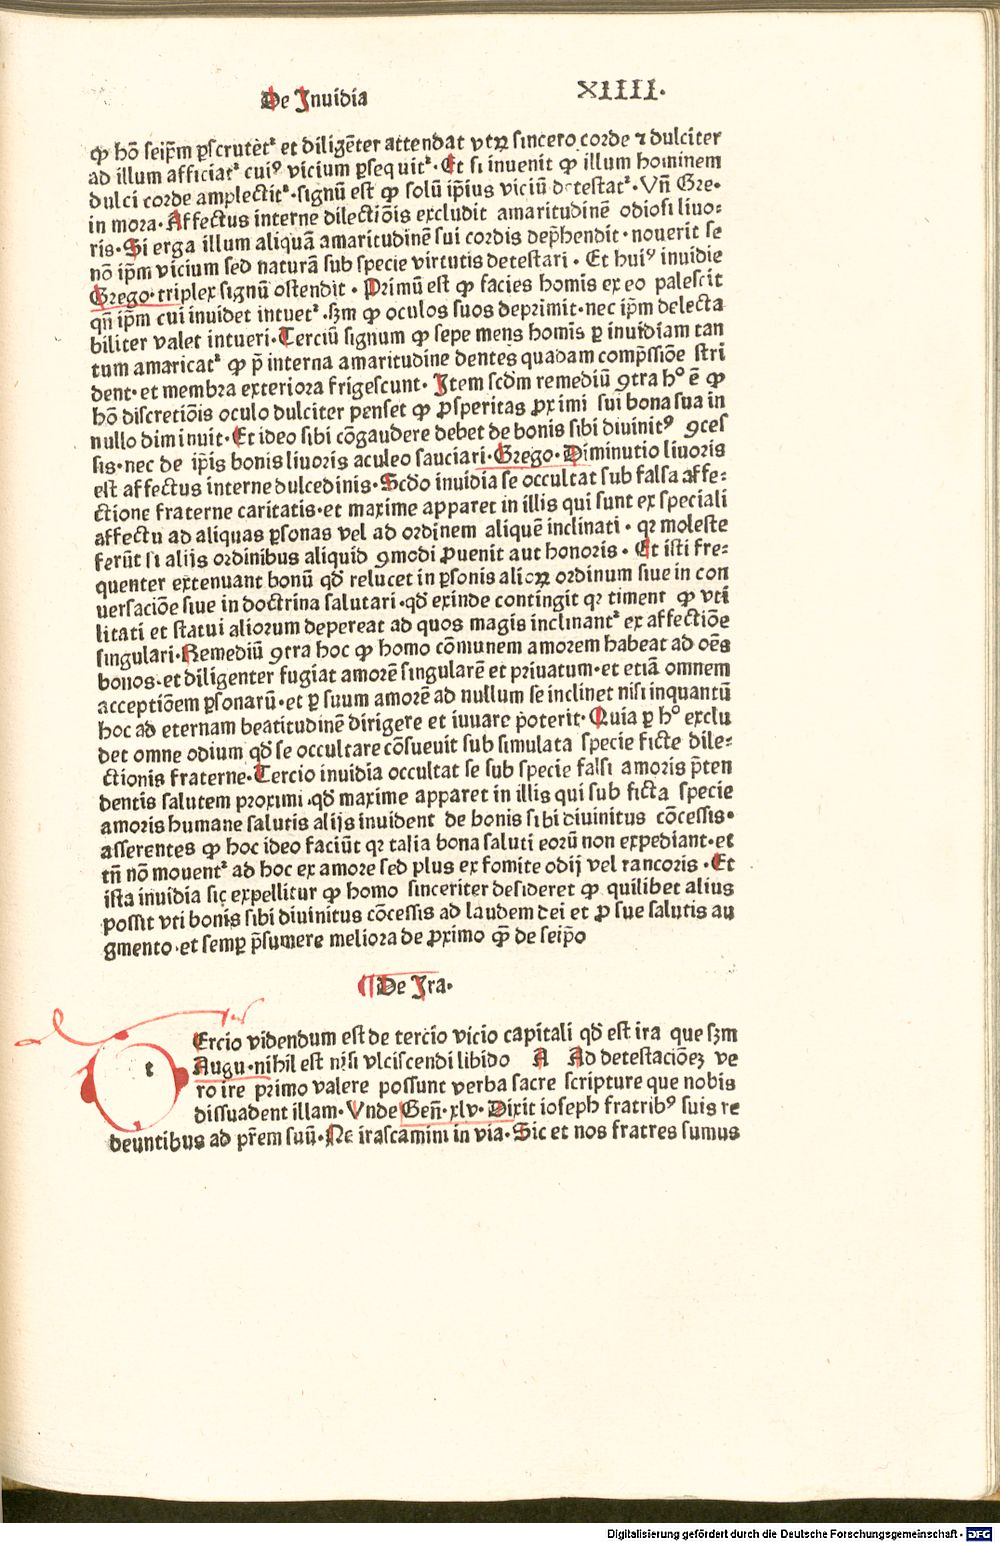 De Inuidia
XIIII.
ꝙ hō seip̄m ꝑscrutet᷑ et diligēter attendat vtꝝ sincero corde ⁊ dulciter
ad illum afficiat᷑ cuiꝰ vicium ꝑsequit᷑. Et si inuenit ꝙ illum hominem
dulci corde amplectit᷑. signū est ꝙ solū ip̄ius viciū detestat᷑. Vn̄ Gre.
in mora. Affectus interne dilectiōis excludit amaritudinē odiosi liuo⸗
ris. Si erga illum aliquā amaritudinē sui cordis dep̄hendit. nouerit se
nō ip̄m vicium sed naturā sub specie virtutis detestari. Et huiꝰ inuidie
Grego. triplex signū ostendit. Primū est ꝙ facies homis ex eo palescit
qn̄ ip̄m cui inuidet intuet᷑. sꝫm ꝙ oculos suos deprimit. nec ip̄m delecta
biliter valet intueri. Terciū signum ꝙ sepe mens homis ꝑ inuidiam tan
tum amaricat᷑ ꝙ p̄ interna amaritudine dentes quadam comp̄ssiōe stri
dent. et membra exteriora frigescunt. Item scd̄m remediū ꝯtra hᵒ ē ꝙ
hō discretiōis oculo dulciter penset ꝙ ꝓsperitas ꝓximi sui bona sua in
nullo diminuit. Et ideo sibi cōgaudere debet de bonis sibi diuinitꝰ ꝯces
sis. nec de ip̄is bonis liuoris aculeo sauciari. Grego. Diminutio liuoris
est affectus interne dulcedinis. Scd̄o inuidia se occultat sub falsa affe⸗
ctione fraterne caritatis. et maxime apparet in illis qui sunt ex speciali
affectu ad aliquas ꝑsonas vel ad ordinem aliquē inclinati. qꝛ moleste
ferūt si alijs ordinibus aliquid ꝯmodi ꝓuenit aut honoris. Et isti fre⸗
quenter extenuant bonū qd̄ relucet in ꝑsonis alioꝝ ordinum siue in con
uersaciōe siue in doctrina salutari. qd̄ exinde contingit qꝛ timent ꝙ vti
litati et statui aliorum depereat ad quos magis inclinant᷑ ex affectiōe
singulari. Remediū ꝯtra hoc ꝙ homo cōmunem amorem habeat ad oēs
bonos. et diligenter fugiat amorē singularē et priuatum. et etiā omnem
acceptiōem ꝑsonarū. et ꝑ suum amorē ad nullum se inclinet nisi inquantū
hoc ad eternam beatitudinē dirigere et iuuare poterit. Quia ꝑ hᵒ exclu
det omne odium qd̄ se occultare cōsueuit sub simulata specie ficte dile⸗
ctionis fraterne. Tercio inuidia occultat se sub specie falsi amoris p̄ten
dentis salutem proximi. qd̄ maxime apparet in illis qui sub ficta specie
amoris humane salutis alijs inuident de bonis sibi diuinitus cōcessis.
asserentes ꝙ hoc ideo faciūt qꝛ talia bona saluti eorū non expediant. et
tn̄ nō mouent᷑ ad hoc ex amore sed plus ex fomite odij vel rancoris. Et
ista inuidia sic expellitur ꝙ homo sinceriter desideret ꝙ quilibet alius
possit vti bonis sibi diuinitus cōcessis ad laudem dei et ꝓ sue salutis au
gmento. et semꝑ p̄sumere meliora de ꝓximo ꝙ̄ de seip̄o
De Ira.
t
Ercio videndum est de tercio vicio capitali qd̄ est ira que sꝫm
Augu. nihil est nisi vlciscendi libido A Ad detestaciōeꝫ ve
ro ire primo valere possunt verba sacre scripture que nobis
dissuadent illam. Vnde Gen̄. xlv. Dixit ioseph fratribꝰ suis re
deuntibus ad pr̄em suū. Ne irascamini in via. Sic et nos fratres sumus
Digitalisierung gefördert durch die Deutsche Forschungsgemeinschaft - DFG